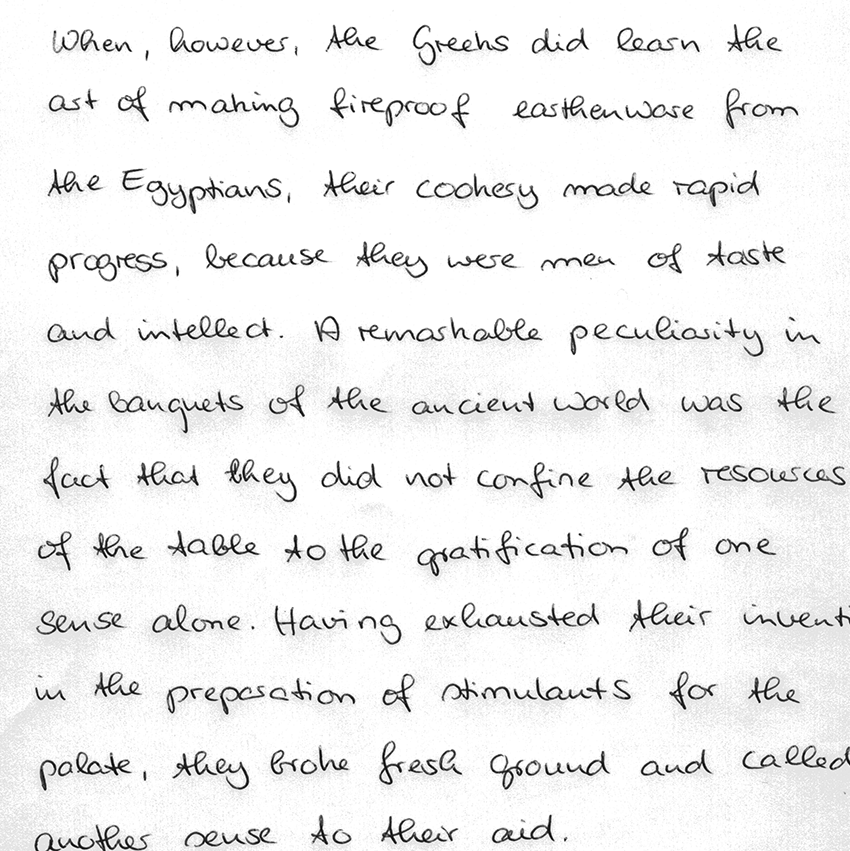 When, however, the Greeks did learn the
art of making fireproof earthenware from
the Egyptians, their cookery made rapid
progress, because they were men of taste
and intellect. A remarkable peculiarity in
the banquets of the ancient world was the
fact that they did not confine the resources
of the table to the gratification of one
sense alone. Having exhausted their inventi
in the preparation of stimulants for the
palate, they broke fresh ground and called
another sense to their aid.